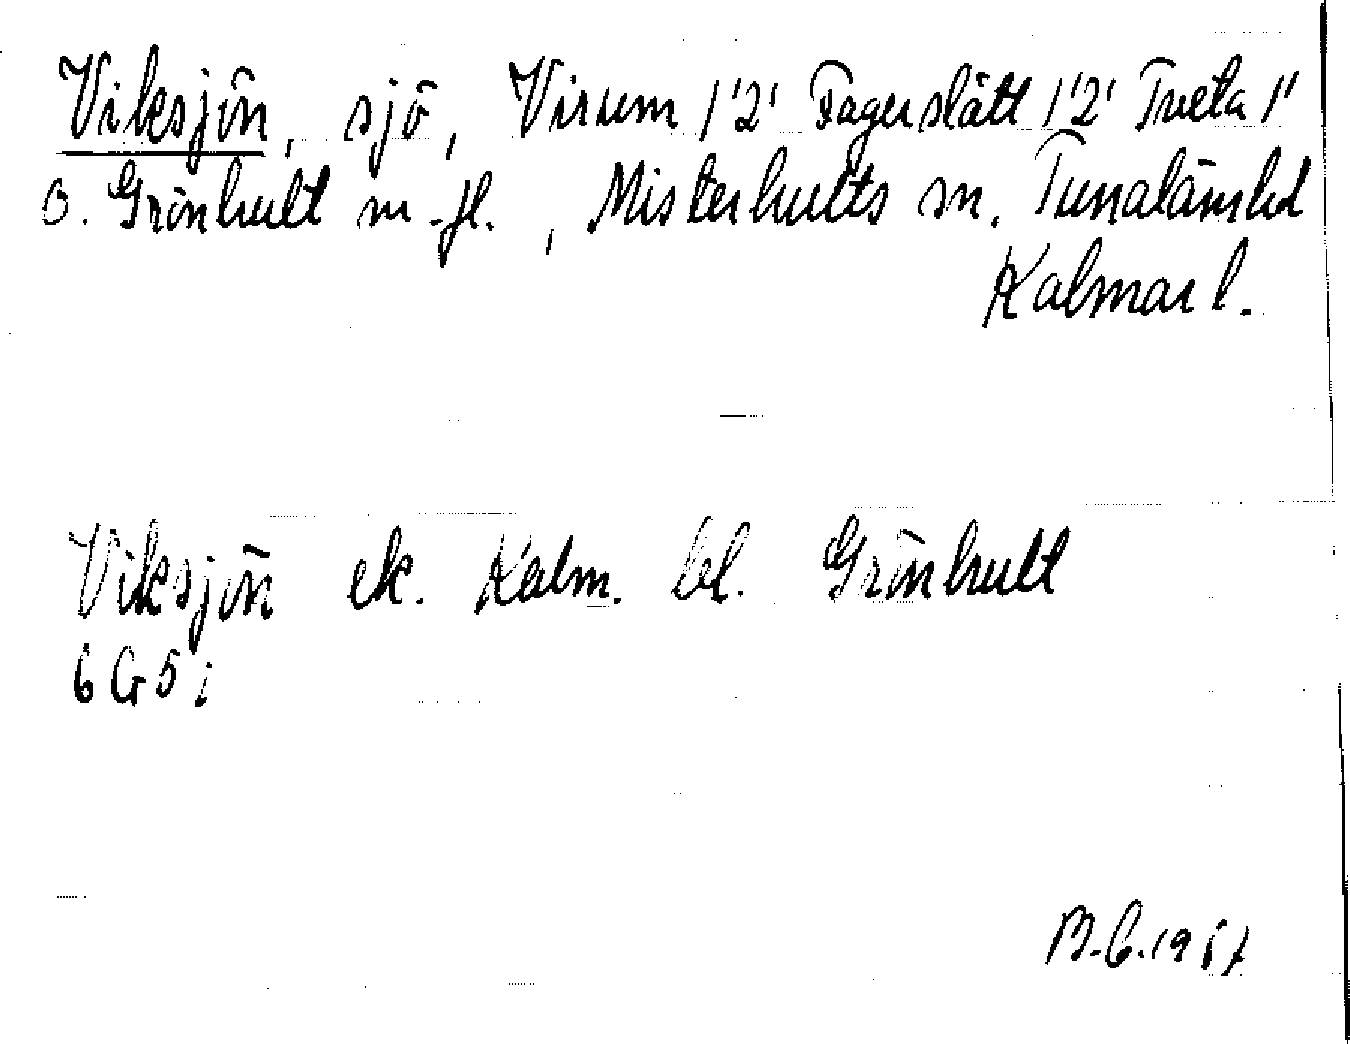 Viksjön, sjö, Virum 1'2' Fagerslätt 1'2' Tveta 1'
o. Grönhult m-fl., Misterhults sn. Tunalänshd
Kalmar l.
Viksjön ek. Kalm. bl. Grönhult
6G5i
B.G.1957